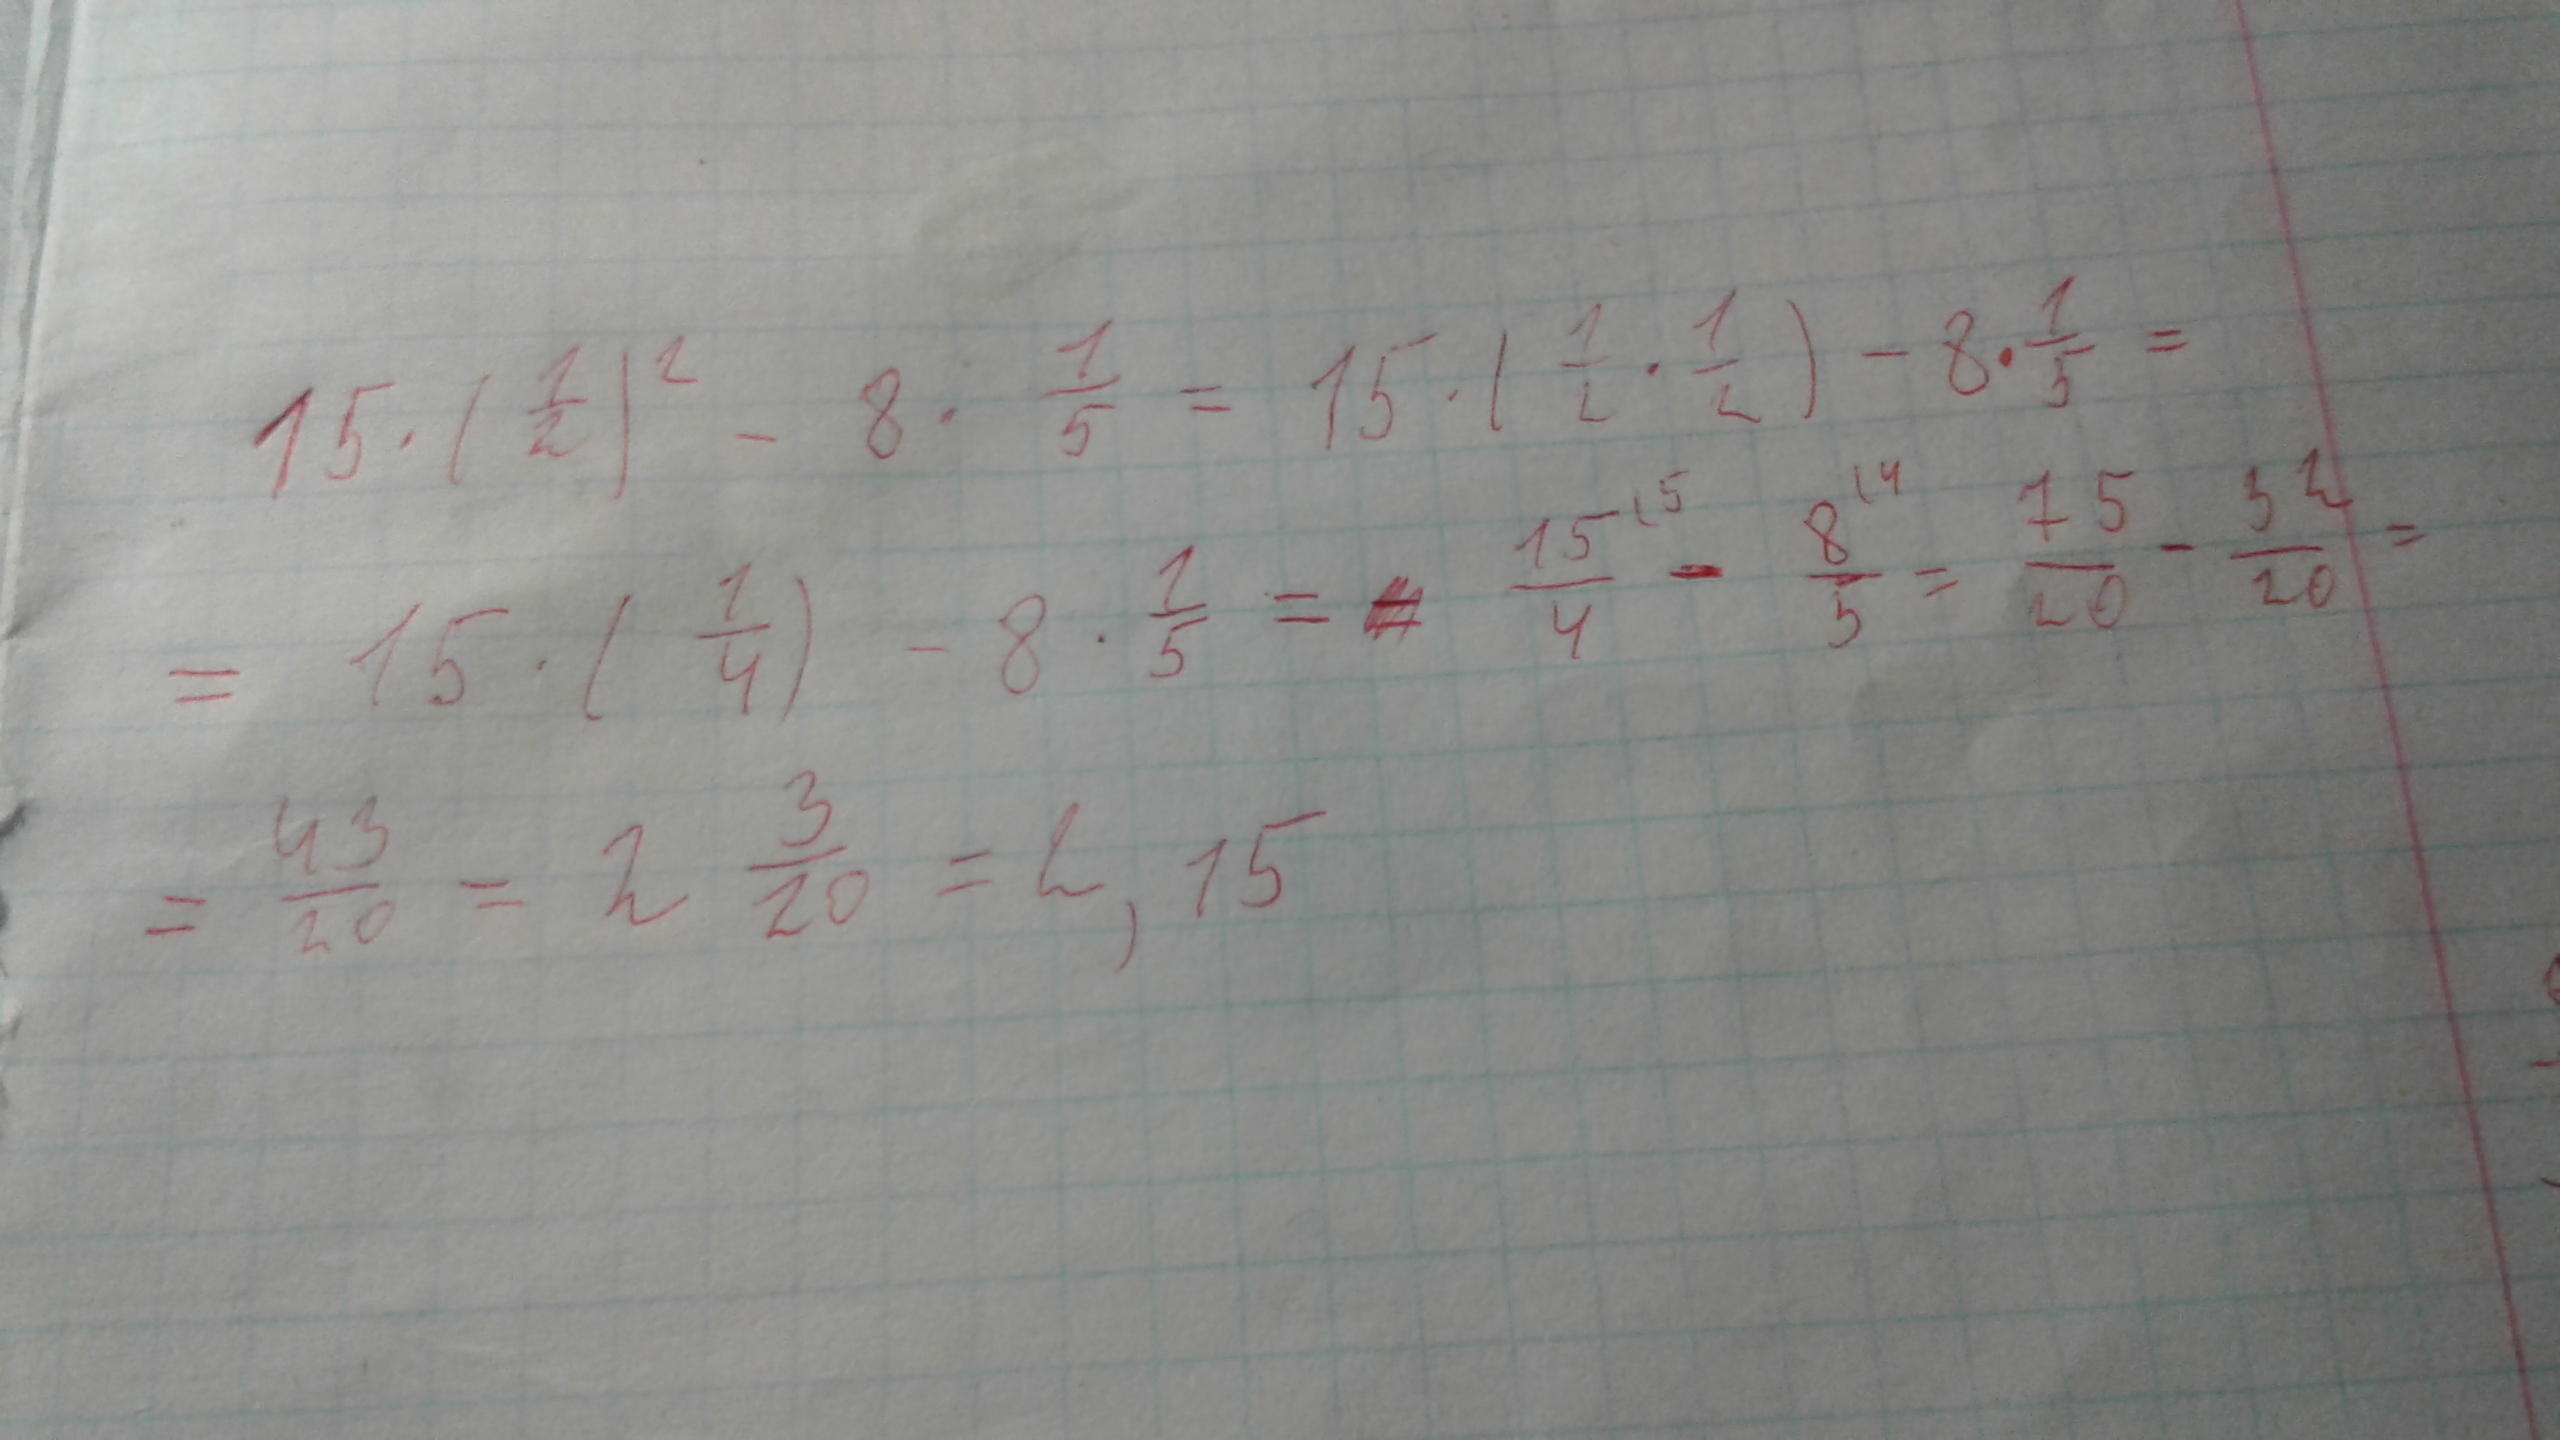 15 · (1/2)² - 8 · 1/5 = 15 · (1/2 · 1/2) - 8 · 1/5 =
= 15 · (1/4) - 8 · 1/5 = 15/4 ⁽⁵ - 8/5 ⁽⁴ = 75/20 - 32/20 =
= 43/20 = 2 3/20 = 2,15